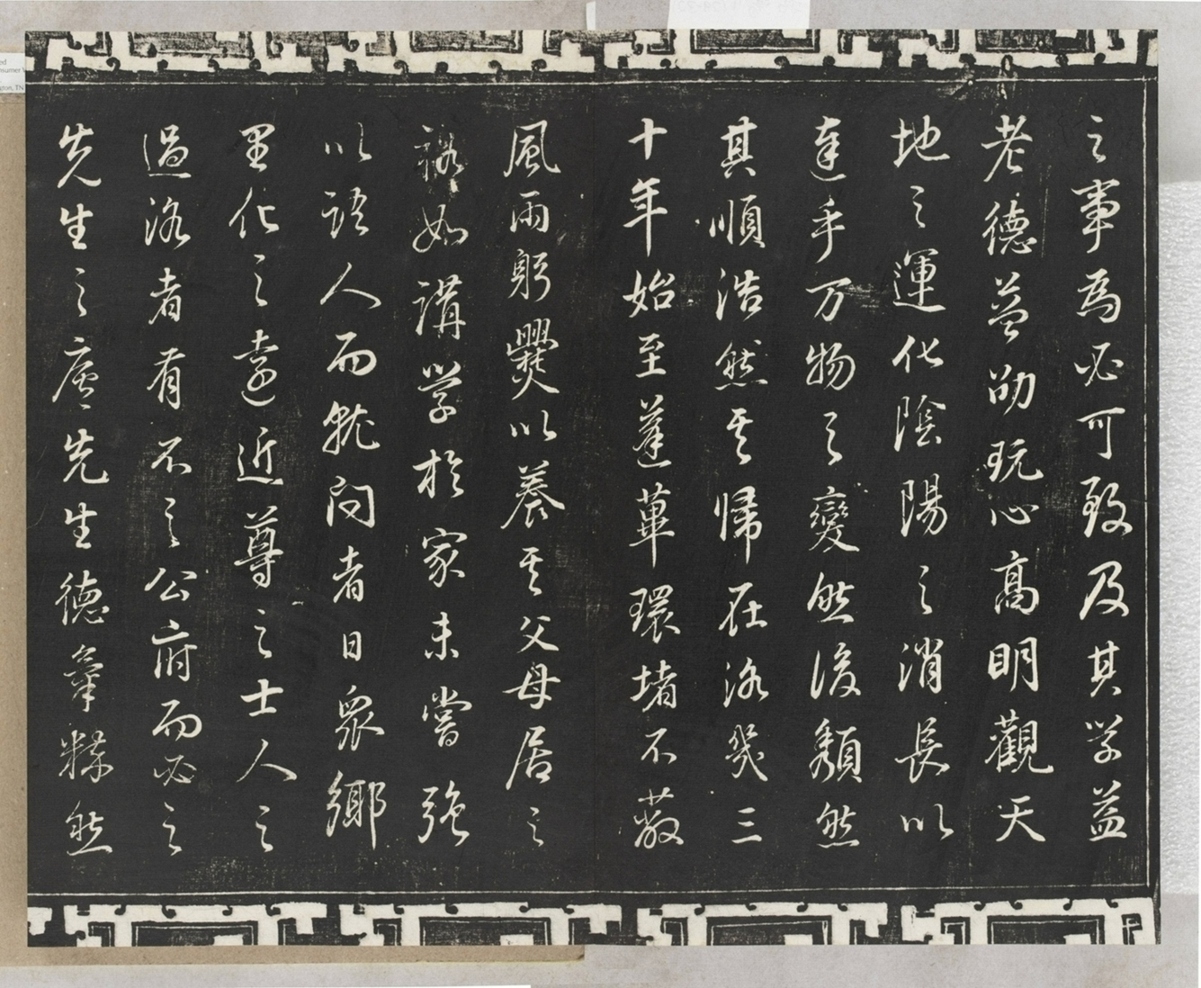 之事為必可致及其学益
老德益劭玩心高明觀天
地之運化陰陽之消長以
達乎万物之變然後頹然
其順浩然其歸在洛幾三
十年始至蓬蓽環堵不蔽
風雨躬爨以養其父母居之
裕如講学於家未嘗強
以語人而就問者日眾鄉
里化之遠近尊之士人之
過洛者有不之公府而必之
先生之廬先生德氣粹然